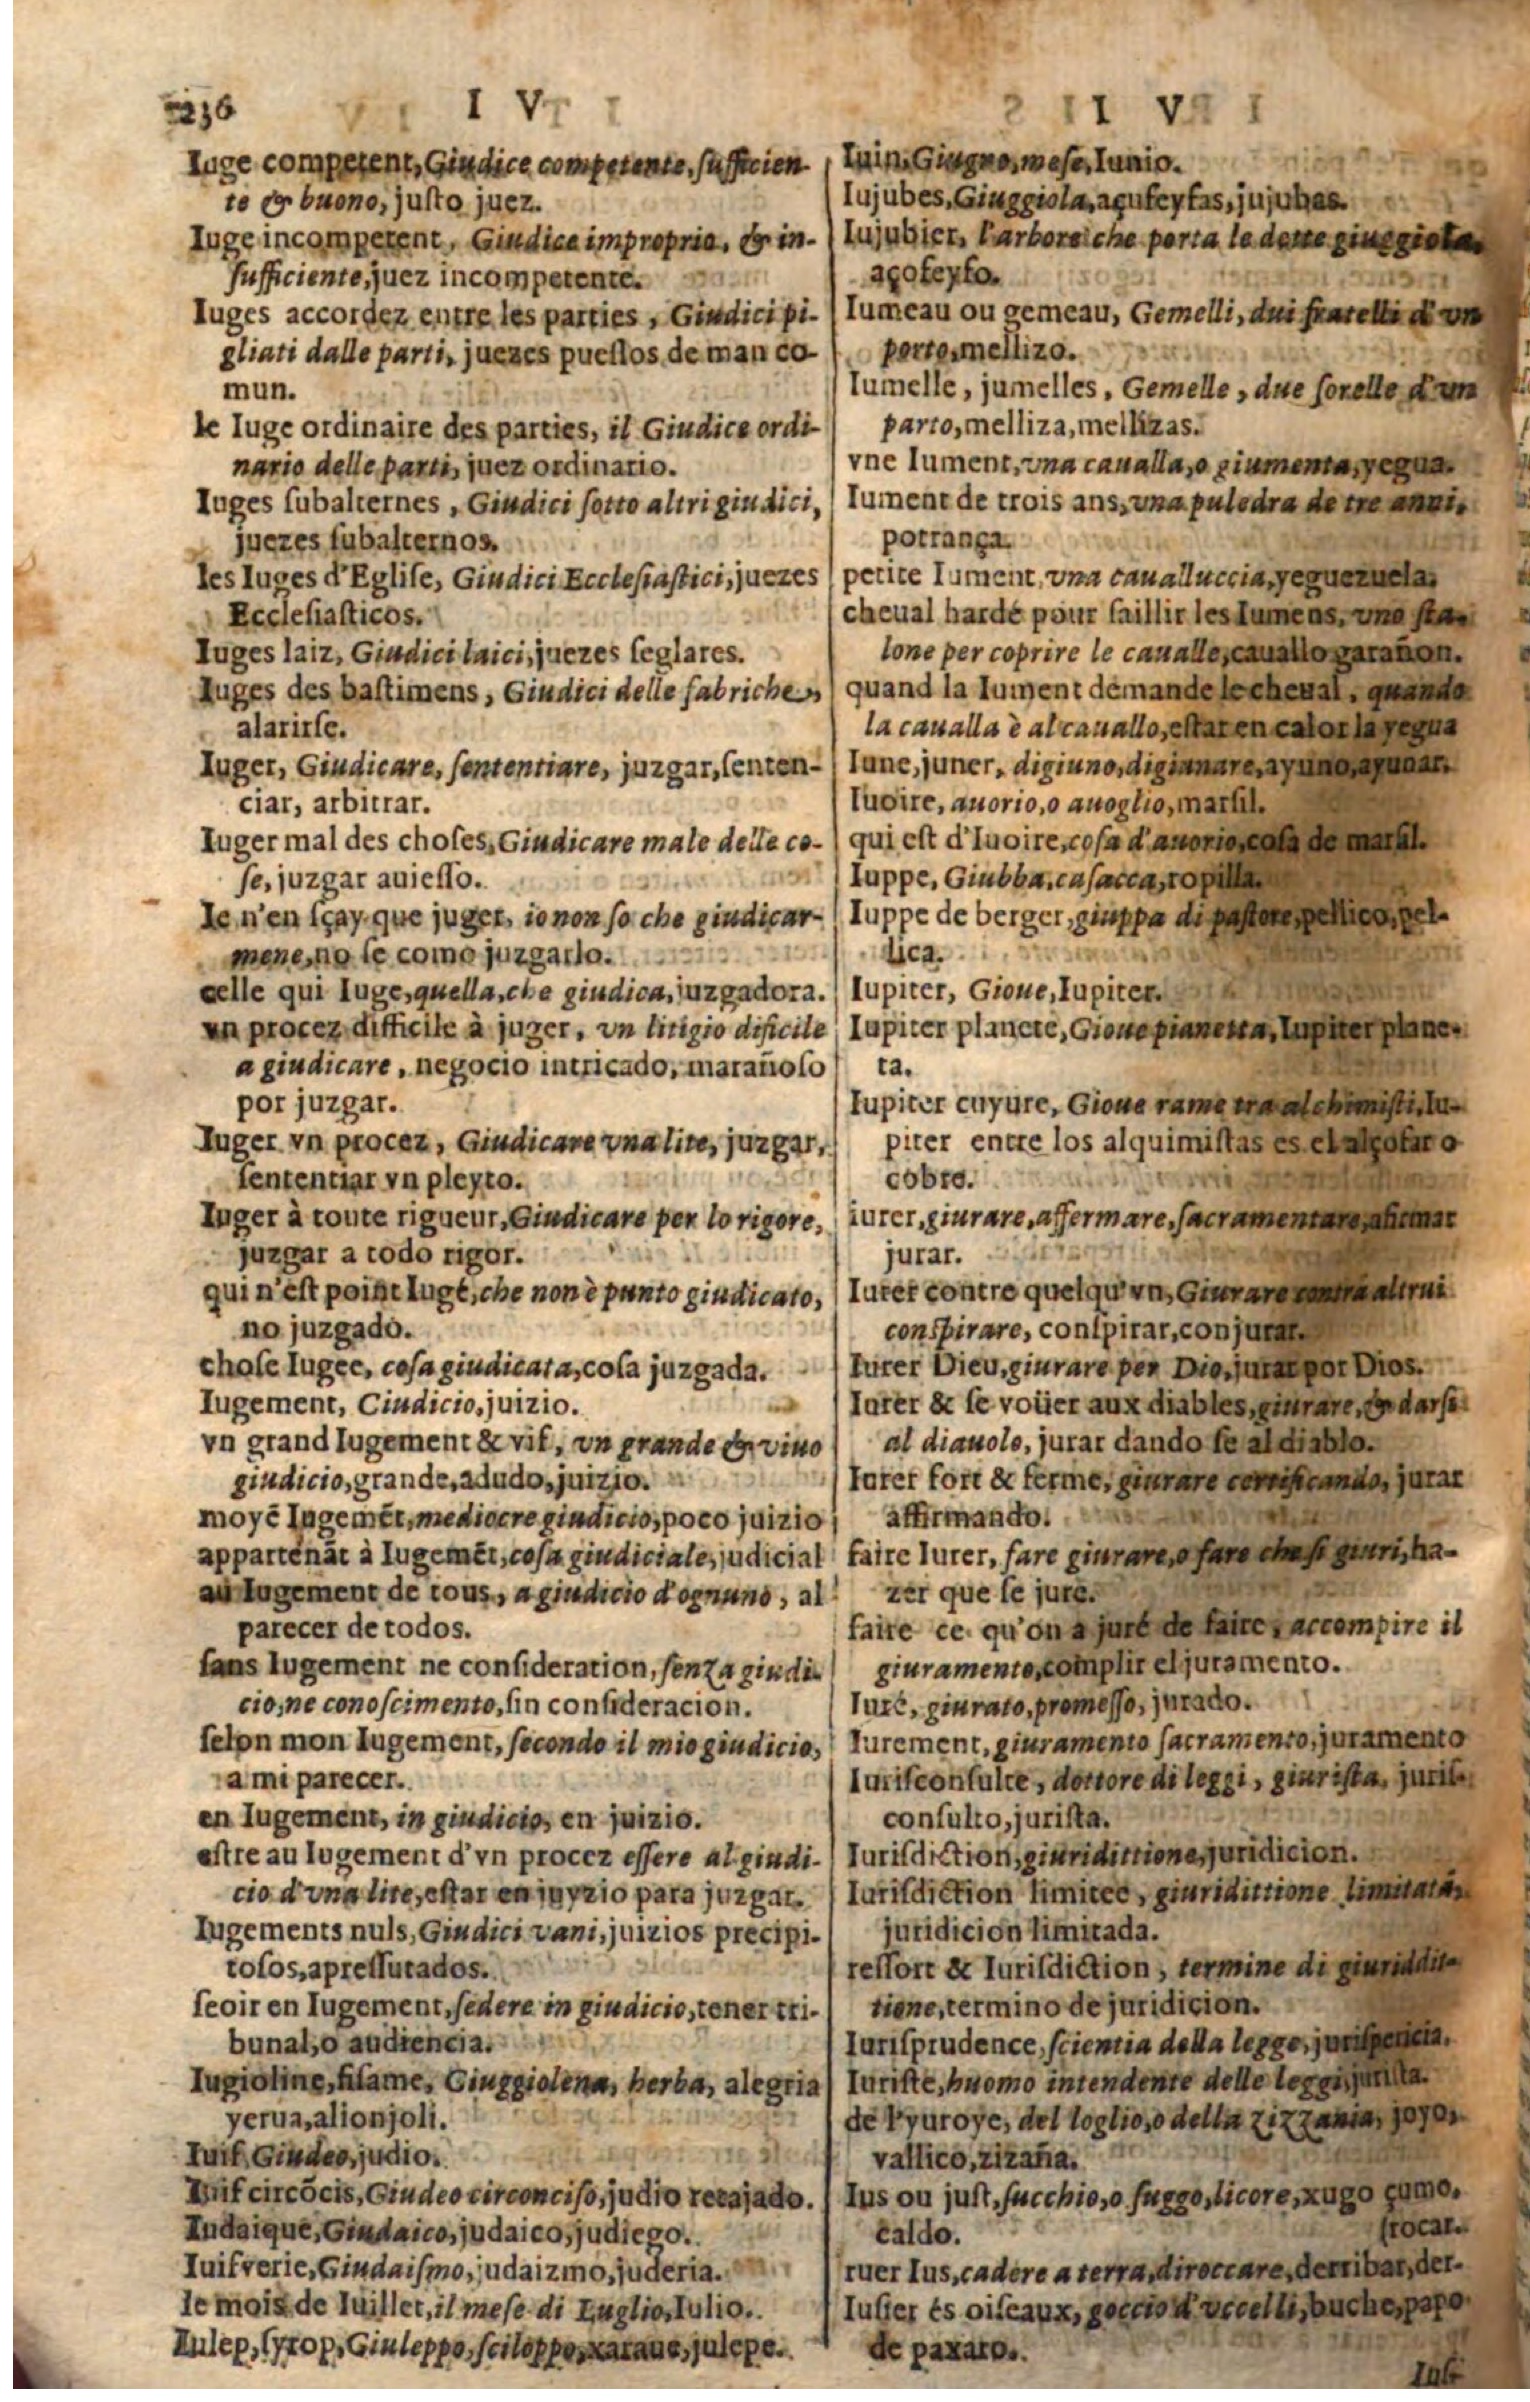 236
I V
I V
Iuge competent, Giudice competente, sufficien-
te & buono, juſto juez.
Iuge incompetent, Giudice improprio, & in-
ſufficiente, juez incompetente.
Iuges accordez entre les parties, Giudici pi-
gliati dalle parti, juezes pueſtos de man co-
mun.
le Iuge ordinaire des parties, il Giudice ordi-
nario delle parti, juez ordinario.
Iuges ſubalternes, Giudici ſotto altri giudici,
juezes ſubalternos.
les Iuges d'Egliſe, Giudici Eccleſiaſtici, juezes
Eccleſiaſticos.
Iuges laiz, Giudici laici, juezes ſeglares.
Iuges des baſtimens, Giudici delle fabriche,
alarirſe.
Iuger, Giudicare, ſententiare, juzgar, ſenten-
ciar, arbitrar.
Iuger mal des choſes, Giudicare male delle co-
ſe, juzgar auieſſo.
Ie n'en ſçay que juger, io non ſo che giudicar-
mene, no ſe como juzgarlo.
celle qui Iuge, quella, che giudica, juzgadora.
vn procez difficile à juger, vn litigio dificile
a giudicare, negocio intricado, marañoſo
por juzgar.
Iuger vn procez, Giudicare vna lite, juzgar,
ſententiar vn pleyto.
Iuger à toute rigueur, Giudicare per lo rigore,
juzgar a todo rigor.
qui n'eſt point Iugé, che non è punto giudicato,
no juzgado.
choſe Iugee, coſa giudicata, coſa juzgada.
Iugement, Ciudicio, juizio.
vn grand Iugement & vif, vn grande & viuo
giudicio, grande, adudo, juizio.
moyẽ Iugemẽt, mediocre giudicio, poco juizio
appartenãt à Iugemẽt, coſa giudiciale, judicial
au Iugement de tous, a giudicio d'ognuno, al
parecer de todos.
ſans Iugement ne conſideration, ſenza giudi-
cio, ne conoſcimento, ſin conſideracion.
ſelon mon Iugement, ſecondo il mio giudicio,
a mi parecer.
en Iugement, in giudicio, en juizio.
eſtre au Iugement d'vn procez eſſere al giudi-
cio d'vna lite, eſtar en juyzio para juzgar.
Iugements nuls, Giudici vani, juizios precipi-
toſos, apreſſurados.
ſeoir en Iugement, ſedere in giudicio, tener tri-
bunal, o audiencia.
Iugioline, ſiſame, Giuggiolena, herba, alegria
yerua, alionjoli.
Iuif, Giudeo, judio.
Iuif circõcis, Giudeo circonciſo, judio retajado.
Iudaique, Giudaico, judaico, judiego.
Iuifverie, Giudaiſmo, judaizmo, juderia.
le mois de Iuillet, il meſe di Luglio, Iulio.
Iulep, ſyrop, Giuleppo, ſciloppo, xaraue, julepe.
Iuin, Giugno, meſe, Iunio.
Iujubes, Giuggiola, açufeyfas, jujubas.
Iujubier, l'arbore che porta le dette giuggiola,
açofeyfo.
Iumeau ou gemeau, Gemelli, dui fratelli d'vn
porto, mellizo.
Iumelle, jumelles, Gemelle, due ſorelle d'vn
parto, melliza, mellizas.
vne Iument, vna caualla, o giumenta, yegua.
Iument de trois ans, vna puledra de tre anni,
potrança.
petite Iument, vna caualluccia, yeguezuela.
cheual hardé pour ſaillir les Iumens, vno ſta-
lone per coprire le caualle, cauallo garañon.
quand la Iument demande le cheual, quando
la caualla è al cauallo, eſtar en calor la yegua
Iune, juner, digiuno, digiunare, ayuno, ayunar.
Iuoire, auorio, o auoglio, marſil.
qui eſt d'Iuoire, coſa d'auorio, coſa de marſil.
Iuppe, Giubba, caſacca, ropilla.
Iuppe de berger, giuppa di paſtore, pellico, pel-
lica.
Iupiter, Gioue, Iupiter.
Iupiter planete, Gioue pianetta, Iupiter plane-
ta.
Iupiter cuyure, Gioue rame tra alchimiſti, Iu-
piter entre los alquimiſtas es el alçofar o
cobre.
iurer, giurare, affermare, ſacramentare, afirmar
jurar.
Iurer contre quelqu'vn, Giurare contra altrui
conſpirare, conſpirar, conjurar.
Iurer Dieu, giurare per Dio, jurar por Dios.
Iurer & ſe voüer aux diables, giurare, & darſi
al diauolo, jurar dando ſe al diablo.
Iurer fort & ferme, giurare certificando, jurar
affirmando.
faire Iurer, fare giurare, o fare che ſi giuri, ha-
zer que ſe jure.
faire ce qu'on a juré de faire, accompire il
giuramento, complir el juramento.
Iuré, giurato, promeſſo, jurado.
Iurement, giuramento ſacramento, juramento
Iuriſconſulte, dottore di leggi, giuriſta, juriſ-
conſulto, juriſta.
Iuriſdiction, giuridittione, juridicion.
Iuriſdiction limitee, giuridittione limitata,
juridicion limitada.
reſſort & Iuriſdiction, termine di giuriddit-
tione, termino de juridicion.
Iuriſprudence, ſcientia della legge, juriſpericia.
Iuriſte, huomo intendente delle leggi, juriſta.
de l'yuroye, del loglio, o della zizzania, joyo,
vallico, zizaña.
Ius ou juſt, ſucchio, o ſuggo, licore, xugo çumo,
caldo.
(rocar.
ruer Ius, cadere a terra, diroccare, derribar, der-
Iuſier és oiſeaux, goccio d'vccelli, buche, papo
de paxaro.
Iuſ-